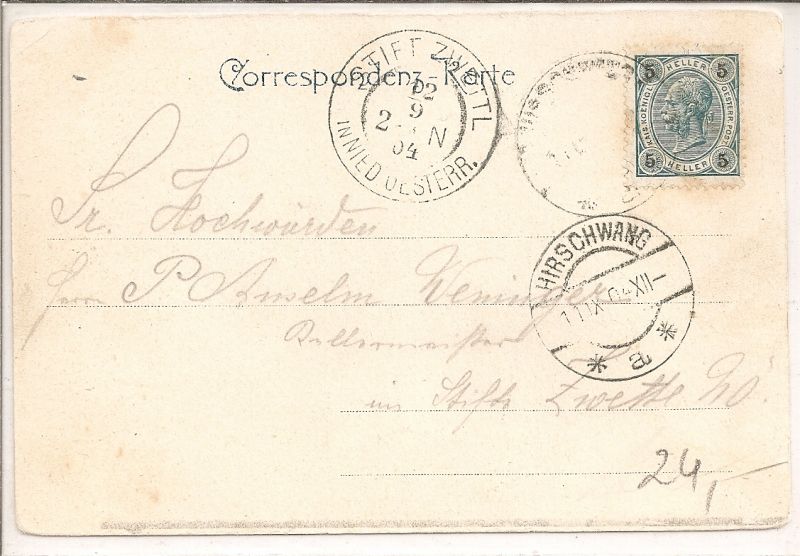 Correspondenz-Karte
STIFT ZWETTL
12
9
2 N
04
IN NIED. OESTERR.
5 HELLER 5
KAIS. KOENIGL. OESTERR. POST
5 HELLER 5
HIRSCHWANG
11 IX 04 XII–
Sr. Hochwürden
Herrn P Anselm Weninger
Kellermeister
im Stifte Zwettl
24,–